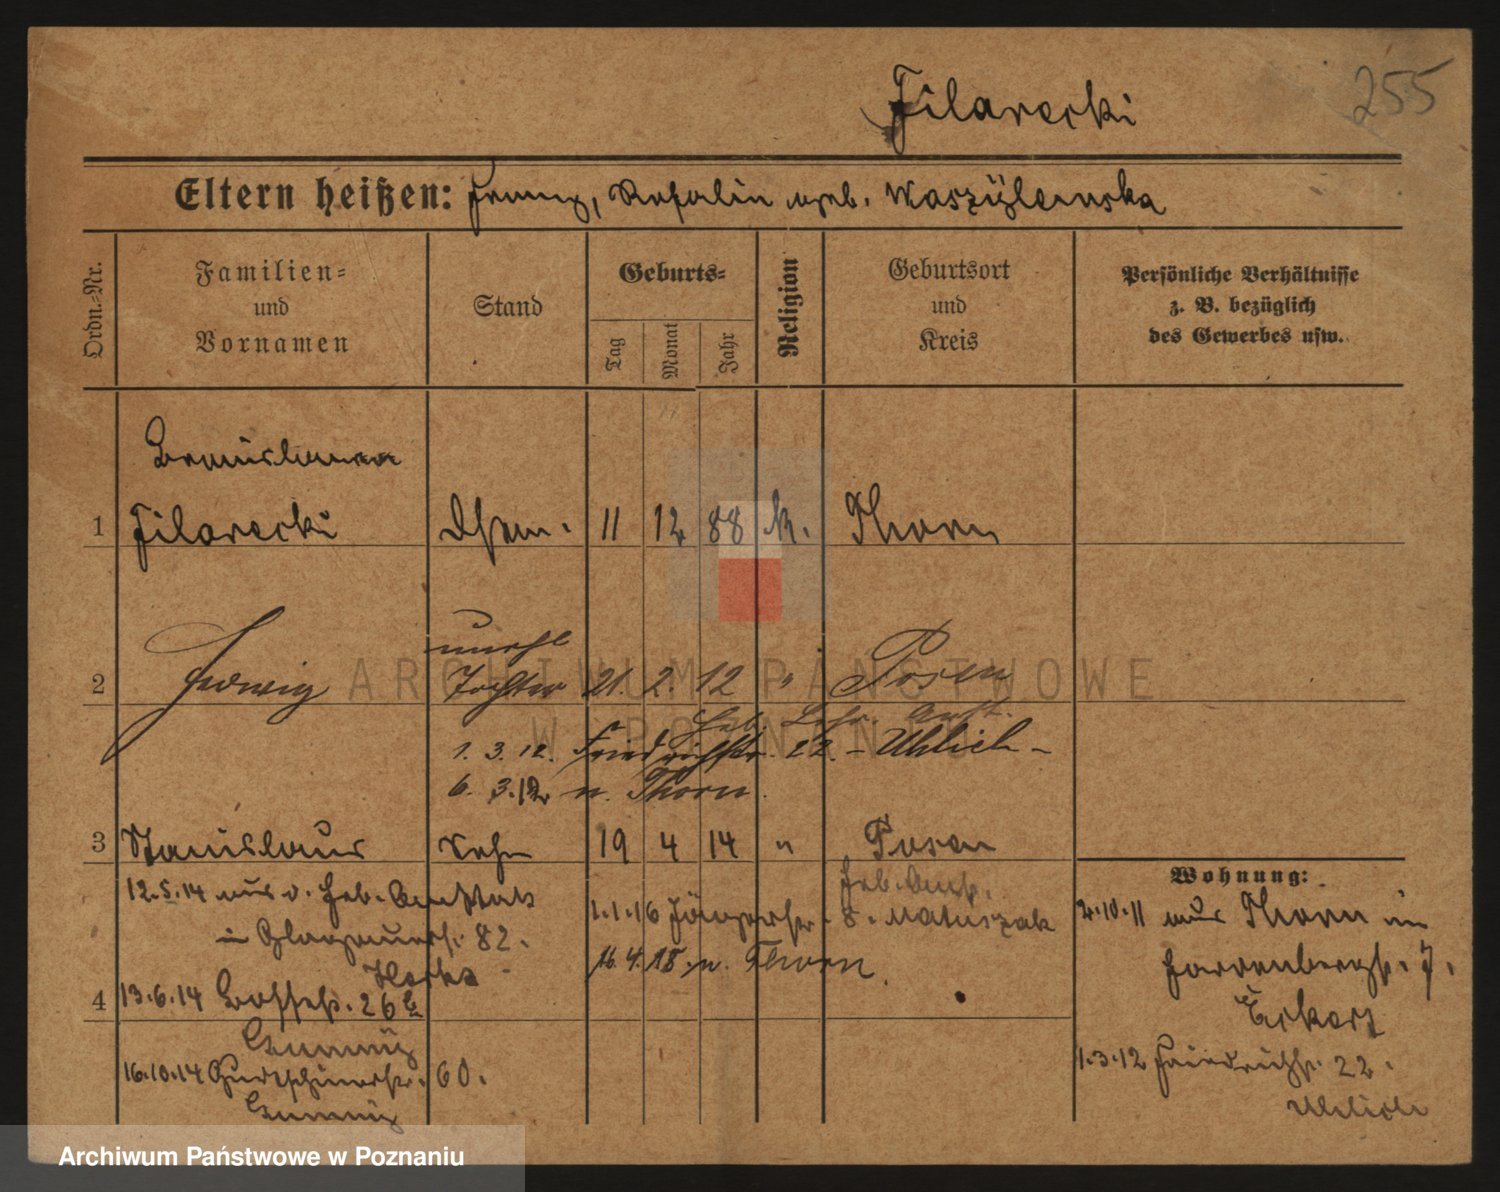 Filarecki
255
Eltern heißen: Franz, Rosalin geb. Waszÿlewska
Ordn.-Nr.
Familien-
und
Vornamen
Stand
Geburts-
Tag
Monat
Jahr
Religion
Geburtsort
und
Kreis
Persönliche Verhältnisse
z. B. bezüglich
des Gewerbes usw.
Bronislawa
1 Filarecki 11 12 88 k. Thorn
unehl
2 Hedwig Tochter 21. 2. 12 " Posen
Heb. Lehr. Anst.
1. 3. 12. Friedrichstr. 22. - Uhlich -
6. 3. 12 n. Thorn.
3 Stanislaus Sohn 19 4 14 " Posen
Heb. Anst.
12.5.14 aus d. Heb. Anstalt
in Glogauerst. 82.
1.1.16 8. Matuszak
16.4.18. n. Thorn.
4 13.6.14 26
16.10.14 60.
Wohnung:
2.10.11 aus Thorn in
7.
Eckert
1.3.12 Friedrichst. 22.
Uhlich
ARCHIWUM PAŃSTWOWE
W POZNANIU
Archiwum Państwowe w Poznaniu